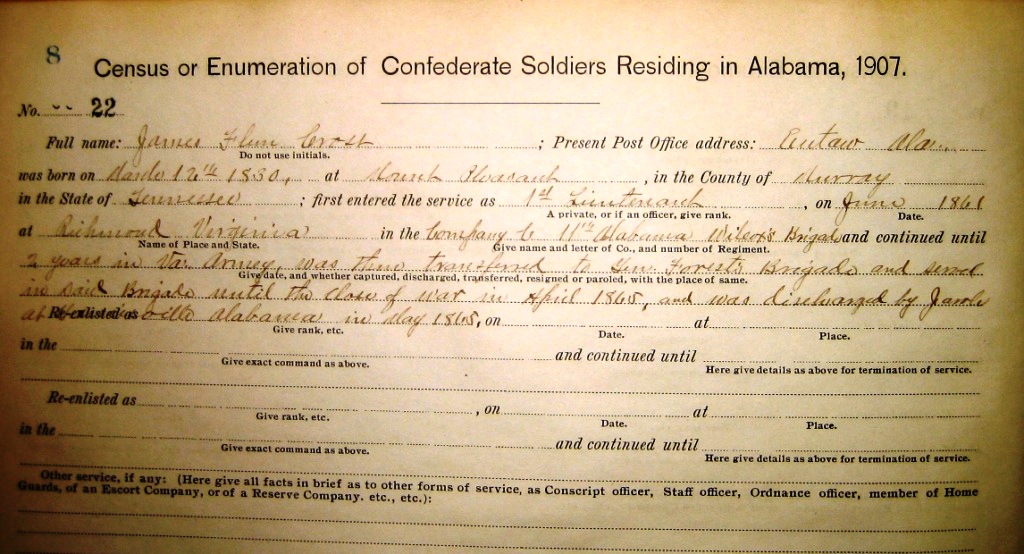 8
Census or Enumeration of Confederate Soldiers Residing in Alabama, 1907.
No. 22
Full name: James Crost ; Present Post Office address: Eutaw Ala.
Do not use initials.
was born on March 12th 1830, at Mount Pleasant , in the County of Murray
in the State of Tennessee ; first entered the service as 1st Lieutenant , on June 1861
A private, or if an officer, give rank. Date.
at Richmond Virginica in the Company C 11th Alabama Wilcox Brigade and continued until
Name of Place and State. Give name and letter of Co., and number of Regiment.
2 years in Va. Armey, was then transferred to Gen. Forest's Brigade and served
Give date, and whether captured, discharged, transferred, resigned or paroled, with the place of same.
in said Brigade until the close of war in April 1865, and was discharged by
at Re-enlisted as Alabama in May 1865, on at
Give rank, etc. Date. Place.
in the and continued until
Give exact command as above. Here give details as above for termination of service.
Re-enlisted as , on at
Give rank, etc. Date. Place.
in the and continued until
Give exact command as above. Here give details as above for termination of service.
Other service, if any: (Here give all facts in brief as to other forms of service, as Conscript officer, Staff officer, Ordnance officer, member of Home
Guards, of an Escort Company, or of a Reserve Company. etc., etc.):